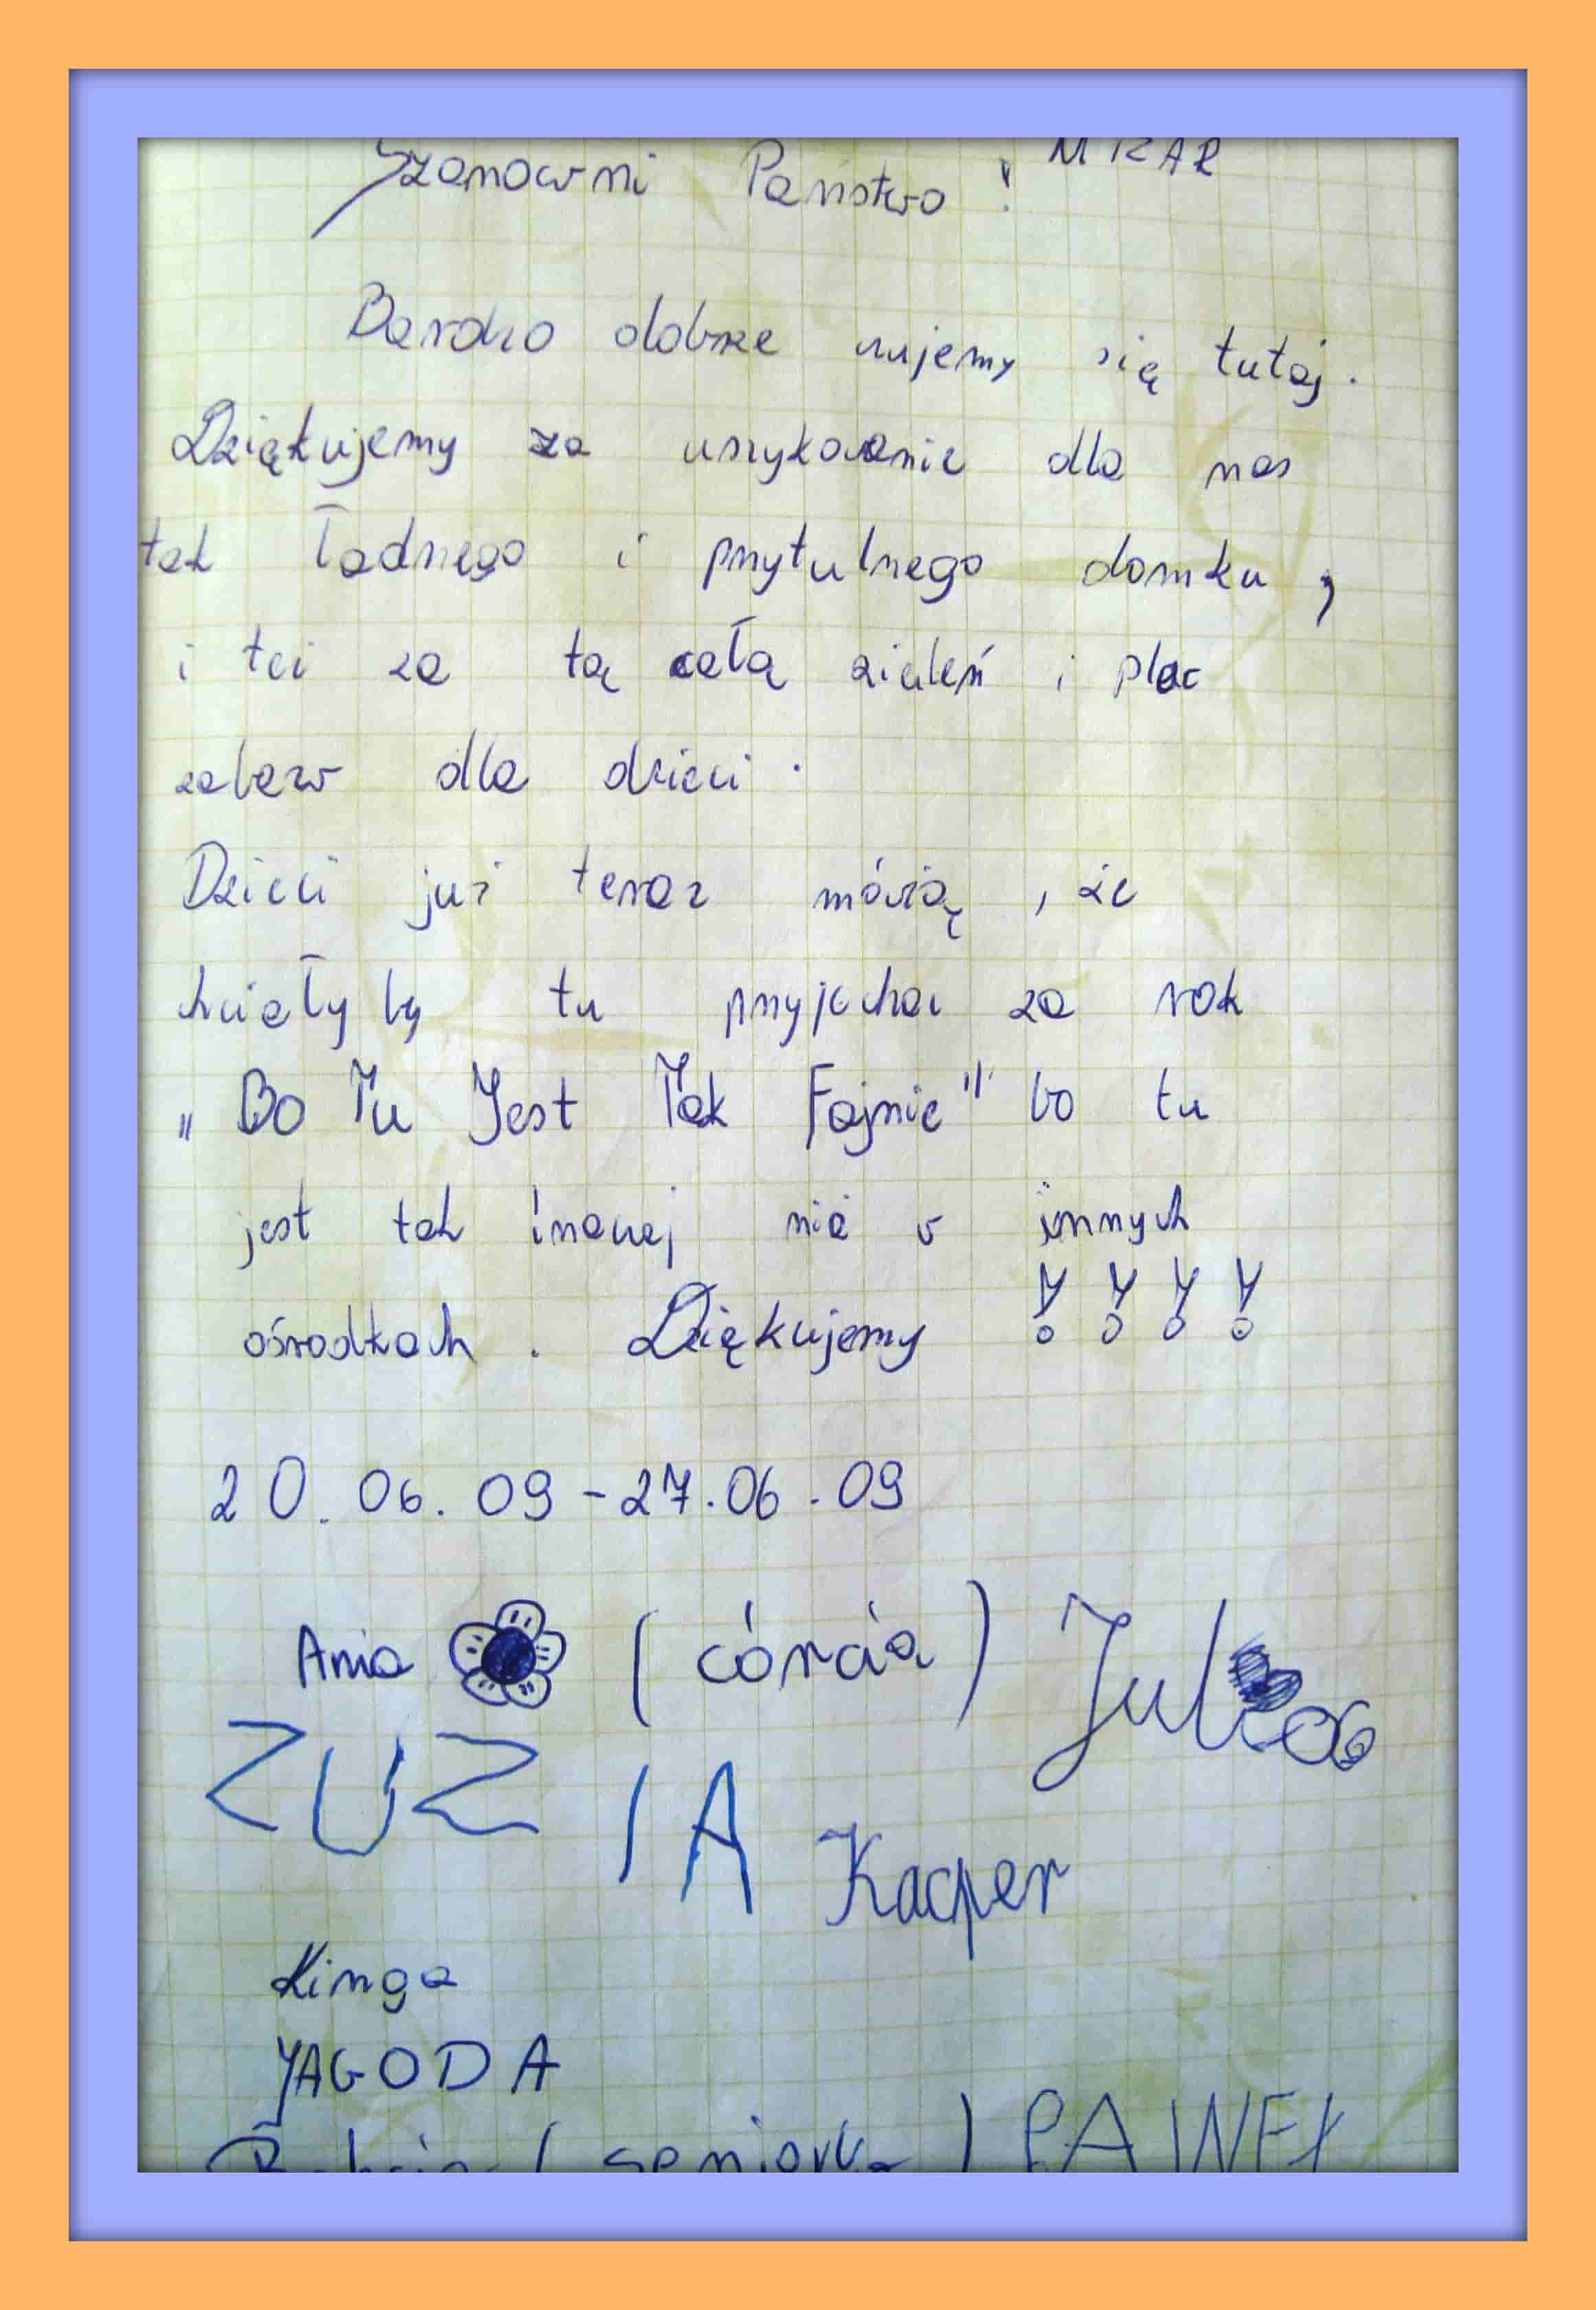 Szanowni Państwo !
Bardzo dobrze czujemy się tutaj.
Dziękujemy za uszykowanie dla nas
tak ładnego i przytulnego domku,
i też za tą całą zieleń i plac
zabaw dla dzieci.
Dzieci już teraz mówią, że
chciały by tu przyjechać za rok
„Bo Tu Jest Tak Fajnie" bo tu
jest tak inaczej niż w innych
ośrodkach. Dziękujemy !!!!
20.06.09-27.06.09
Ania (córcia) Julia
ZUZIA
Kacper
Kinga
JAGODA
Babcia (seniorka) PAWEŁ